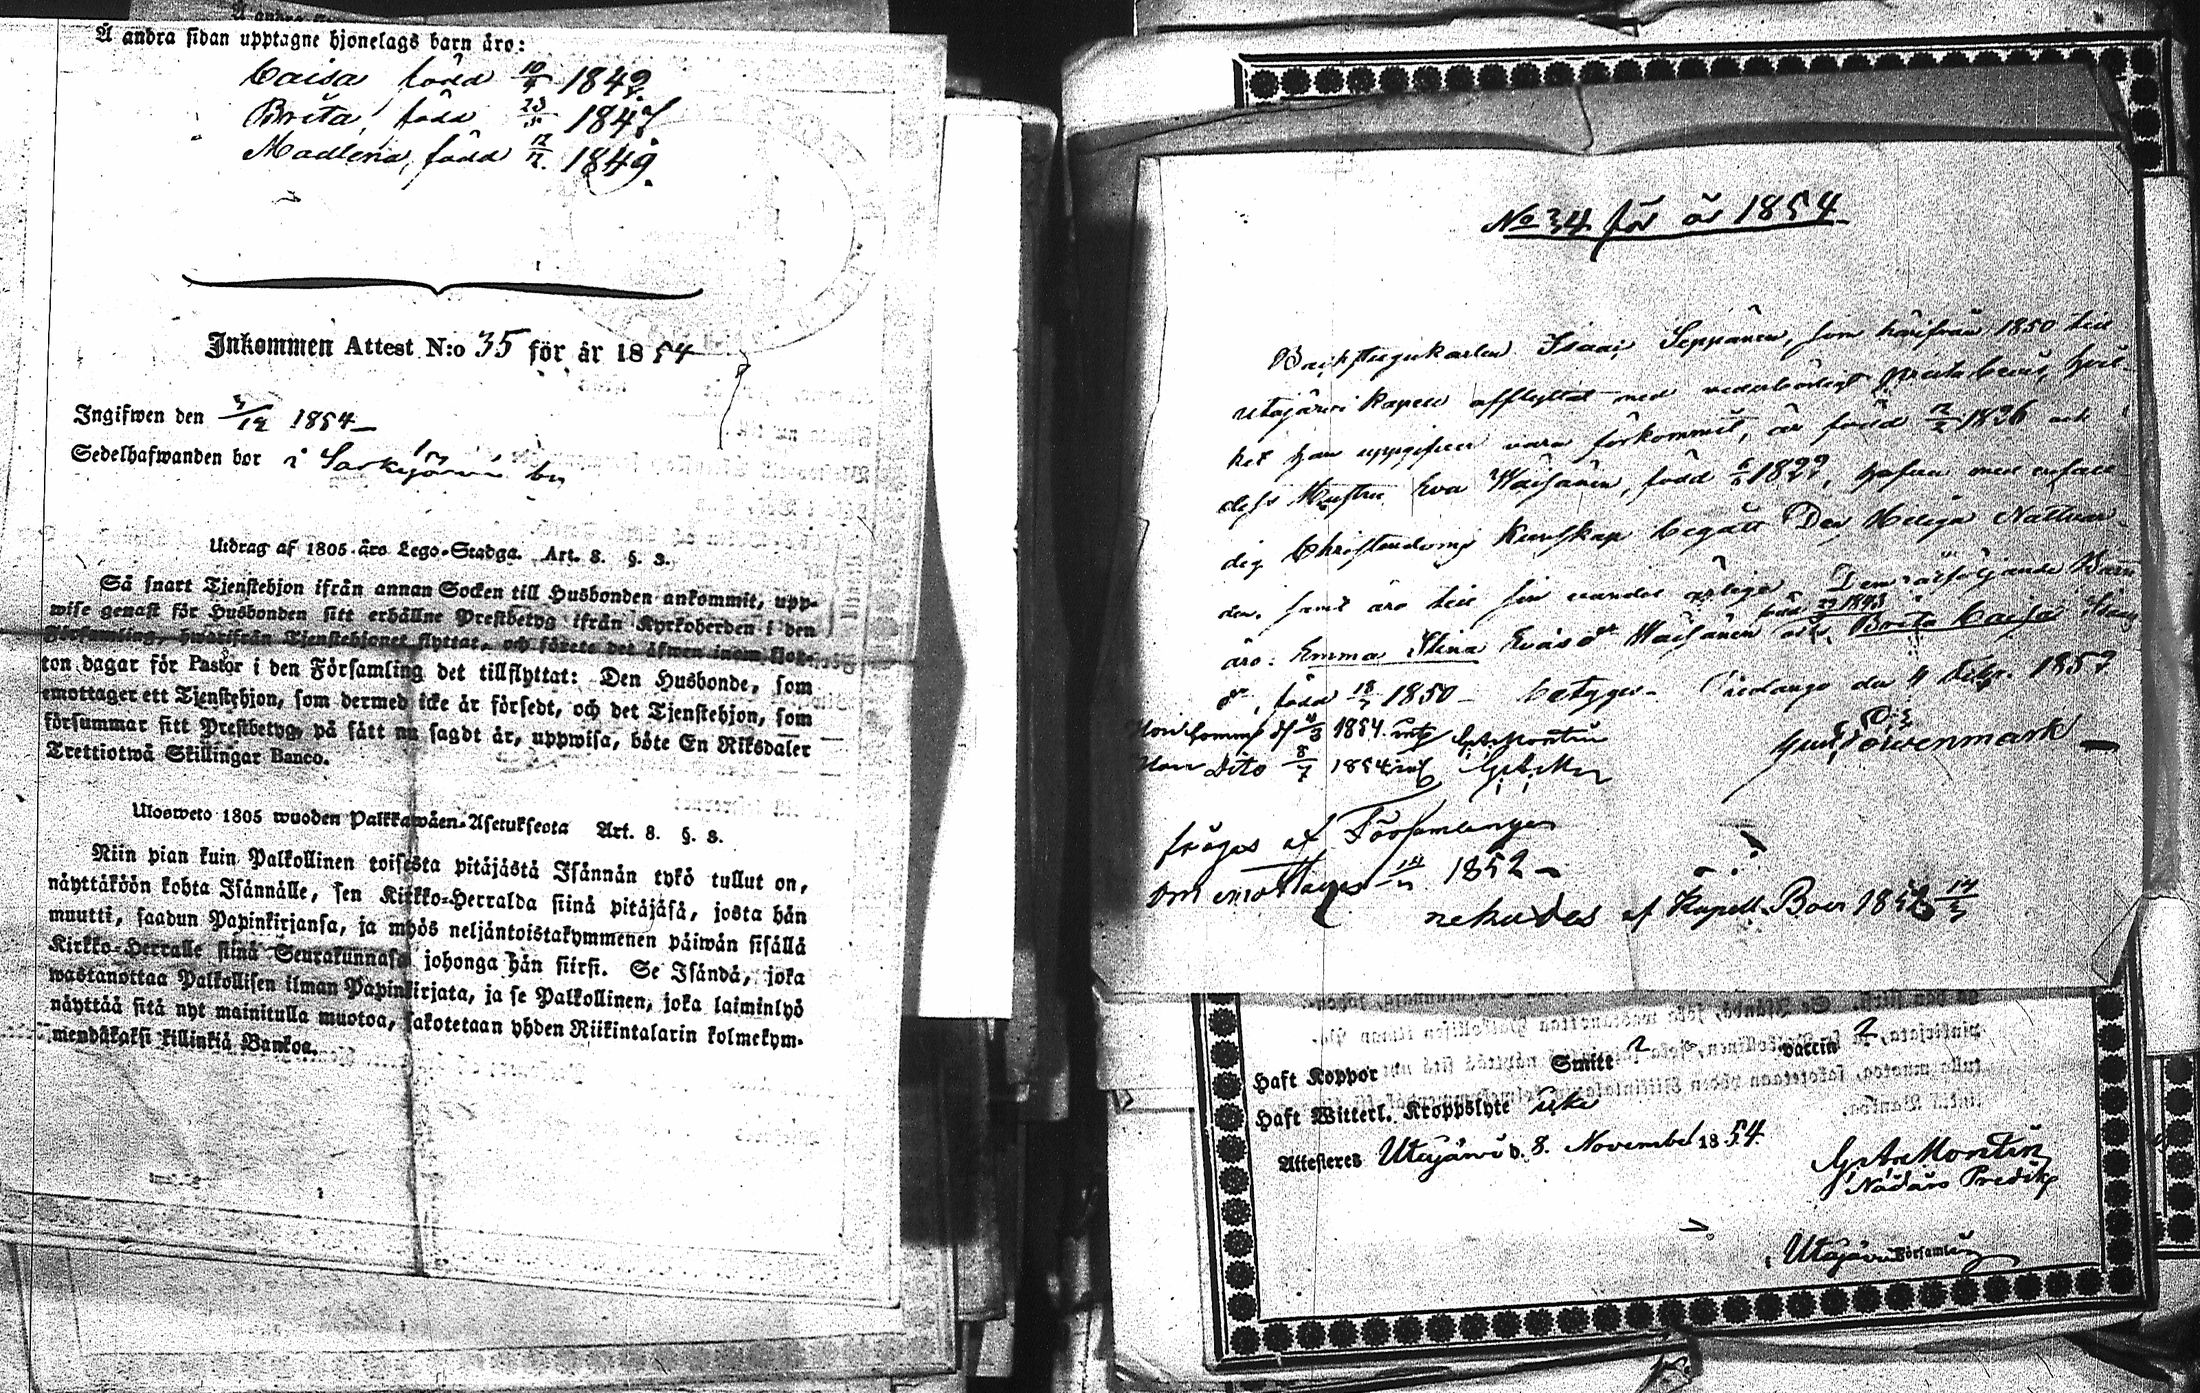 Å andra sidan upptagne hjonelags barn äro:
Caisa född 10/4 1842.
Brita, född 23/3 1847
Madlena, född 12/12 1849.
Inkommen Attest N:o 35 för år 1854
Ingifwen den 3/12 1854
Sedelhafwanden bor i Sarkijärvi by
Utdrag af 1805 års Lego-Stadga. Art. 8. §. 3.
Så snart Tjenstehjon ifrån annan Socken till Husbonden ankommit, upp-
wise genast för Husbonden sitt erhållne Prestbetyg ifrån Kyrkoherden i den
Församling, hwarifrån Tjenstehjonet flyttat, och förete det äfwen inom fjor-
ton dagar för Pastor i den Församling det tillflyttat: Den Husbonde, som
emottager ett Tjenstehjon, som dermed icke är försedt, och det Tjenstehjon, som
försummar sitt Prestbetyg på sätt nu sagdt är, uppwisa, böte En Riksdaler
Trettiotwå Skillingar Banco.
Ulosweto 1805 wuoden Palkkawäen-Asetuksesta Art. 8. §. 3.
Niin pian kuin Palkollinen toisesta pitäjästä Isännän tykö tullut on,
näyttäköön kohta Isännälle, sen Kirkko-Herralda siinä pitäjäsä, josta hän
muutti, saadun Papinkirjansa, ja myös neljäntoistakymmenen päiwän sisällä
Kirkko-Herralle siinä Seurakunnasa johonga hän siirsi. Se Isändä, joka
wastanottaa Palkollisen ilman Papinkirjata, ja se Palkollinen, joka laiminlyö
näyttää sitä nyt mainitulla muotoa, sakotetaan yhden Riikintalarin kolmekym-
mendäkaksi killinkiä Bankoa.
No 34 för år 1854
Backstugukarlen Isaac Seppänen, som härifrån 1850 till
Utajärvi Kapell afflyttat med vederbörligt Prestabevis, hvil-
ket han uppgifver vara förkommit, är född 1826 och
dess Hustru Eva Väisänen, född 1822, hafva med
dig Christendoms Kunskap begått Den Heliga Nattvar-
den, samt äro till sin vandel ärlige. Den åtföljande Barn
född 1843
äro: Emma Stina Evasdr Väisänen och Brita Caisa Isaacs
dr, född 18/3 1850 betygar den 4 1852
1854 G. A. Montin
Dito 8/7 1854
Löwenmark
fråges af Församlingen
om emottages 1852
nekades af Kapell Boer 1852 14/3
Haft Koppor Smitt ? vaccin ?
Haft Witterl. Kroppslyte icke
Attesteres Utajärvi d. 8. November 1854
G. A. Montin
Nådårs Predik
Utajärvi Församling